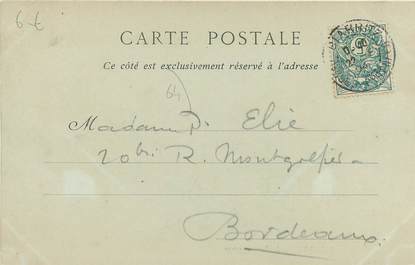 6 €
CARTE POSTALE
Ce côté est exclusivement réservé à l'adresse
64
Madame P. Elie
20 bis R. Montgolfier
Bordeaux